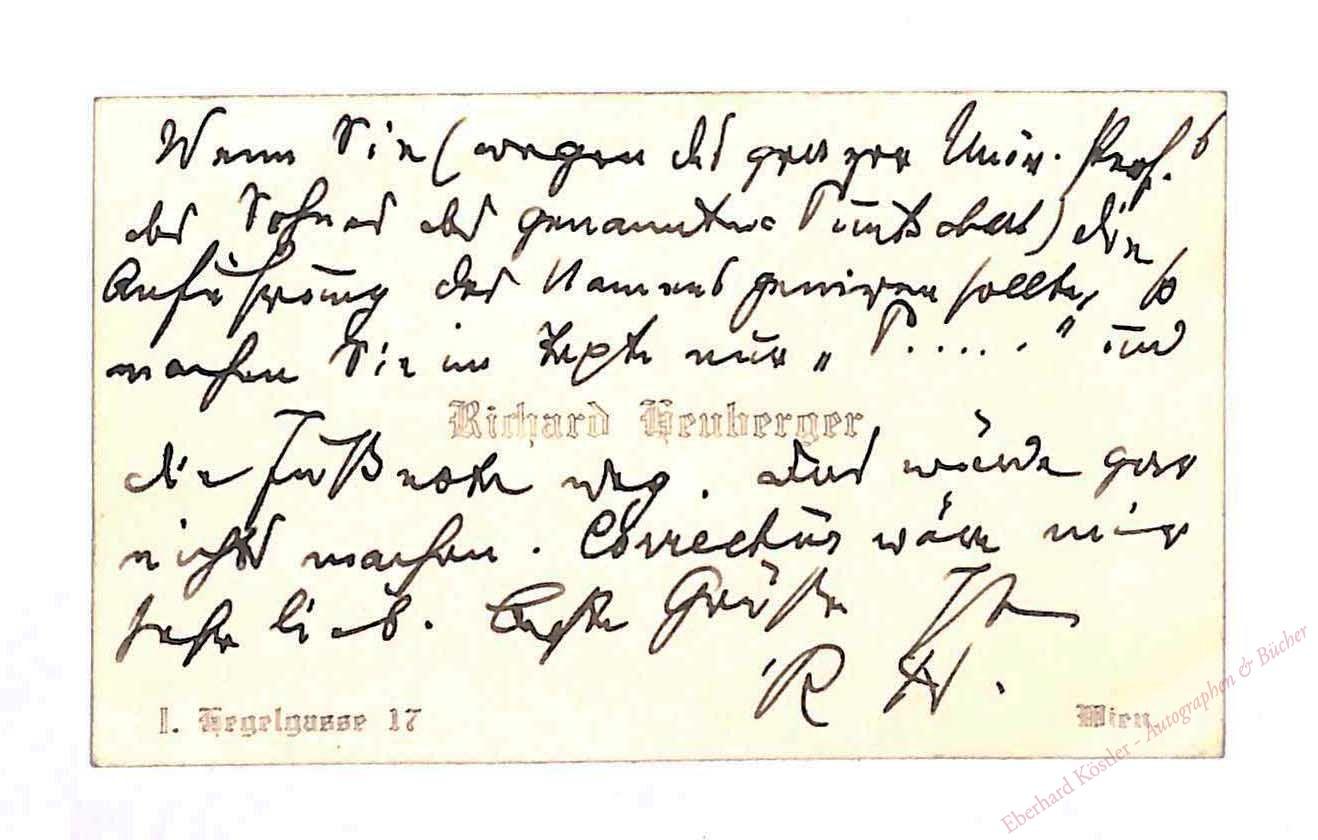 Wenn Sie (wegen des grazer Univ. Prof.s
des Sohnes des genannten Puntschart) die
Anführung des Namens geniren sollte, so
machen Sie im Texte nur „P....." und
Richard Heuberger
die Fußnote weg. Das würde gar
nichts machen. Correctur wäre mir
sehr lieb. Beste Grüße Ihr
R H.
I. Hegelgasse 17
Wien
Eberhard Köstler - Autographen & Bücher